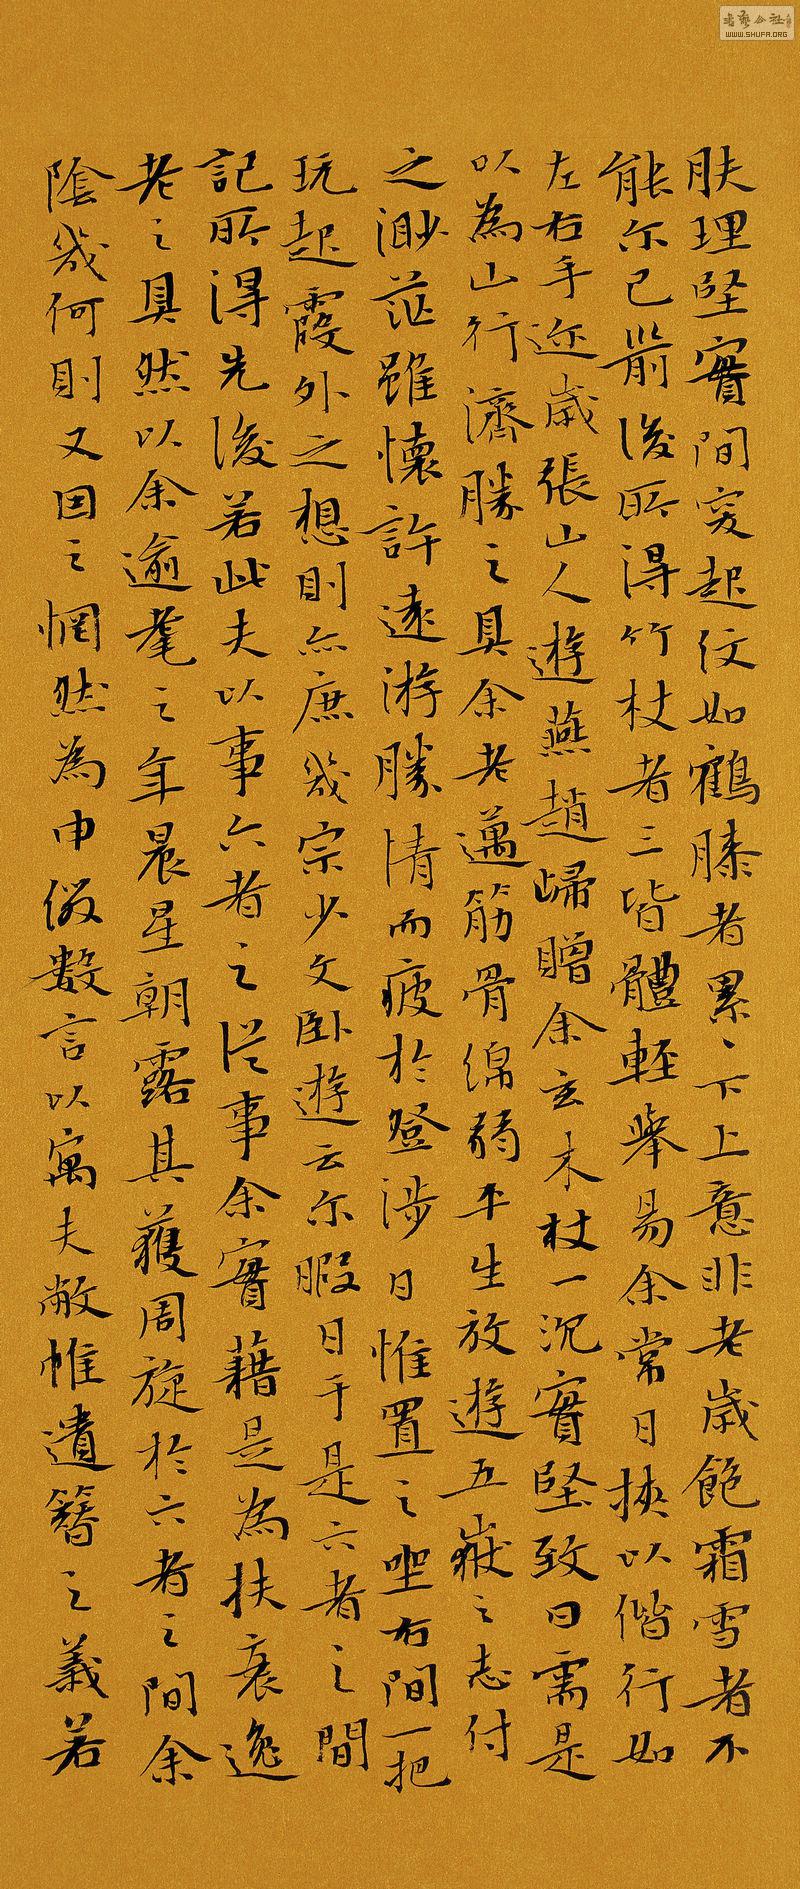 膚理堅實間突起紋如鶴膝者累〻下上意非老歲飽霜雪者不
能尔已前後所得竹杖者三皆體輕舉易余常日挾以偕行如
左右手近歲張山人遊燕趙歸贈余玄木杖一沉實堅致曰需是
以為山行濟勝之具余老邁筋骨綿弱平生放遊五嶽之志付
之渺茫雖懷許遠游勝情而疲於登涉日惟置之坐右間一把
玩起霞外之想則亦庶幾宗少文卧遊云尔暇日于是六者之間
記所得先後若此夫以事六者之從事余實藉是為扶衰逸
老之具然以余逾耄之年晨星朝露其獲周旋於六者之間余
陰幾何則又因之惘然為申儆數言以寓夫敝帷遺簪之義若
WWW.SHUFA.ORG